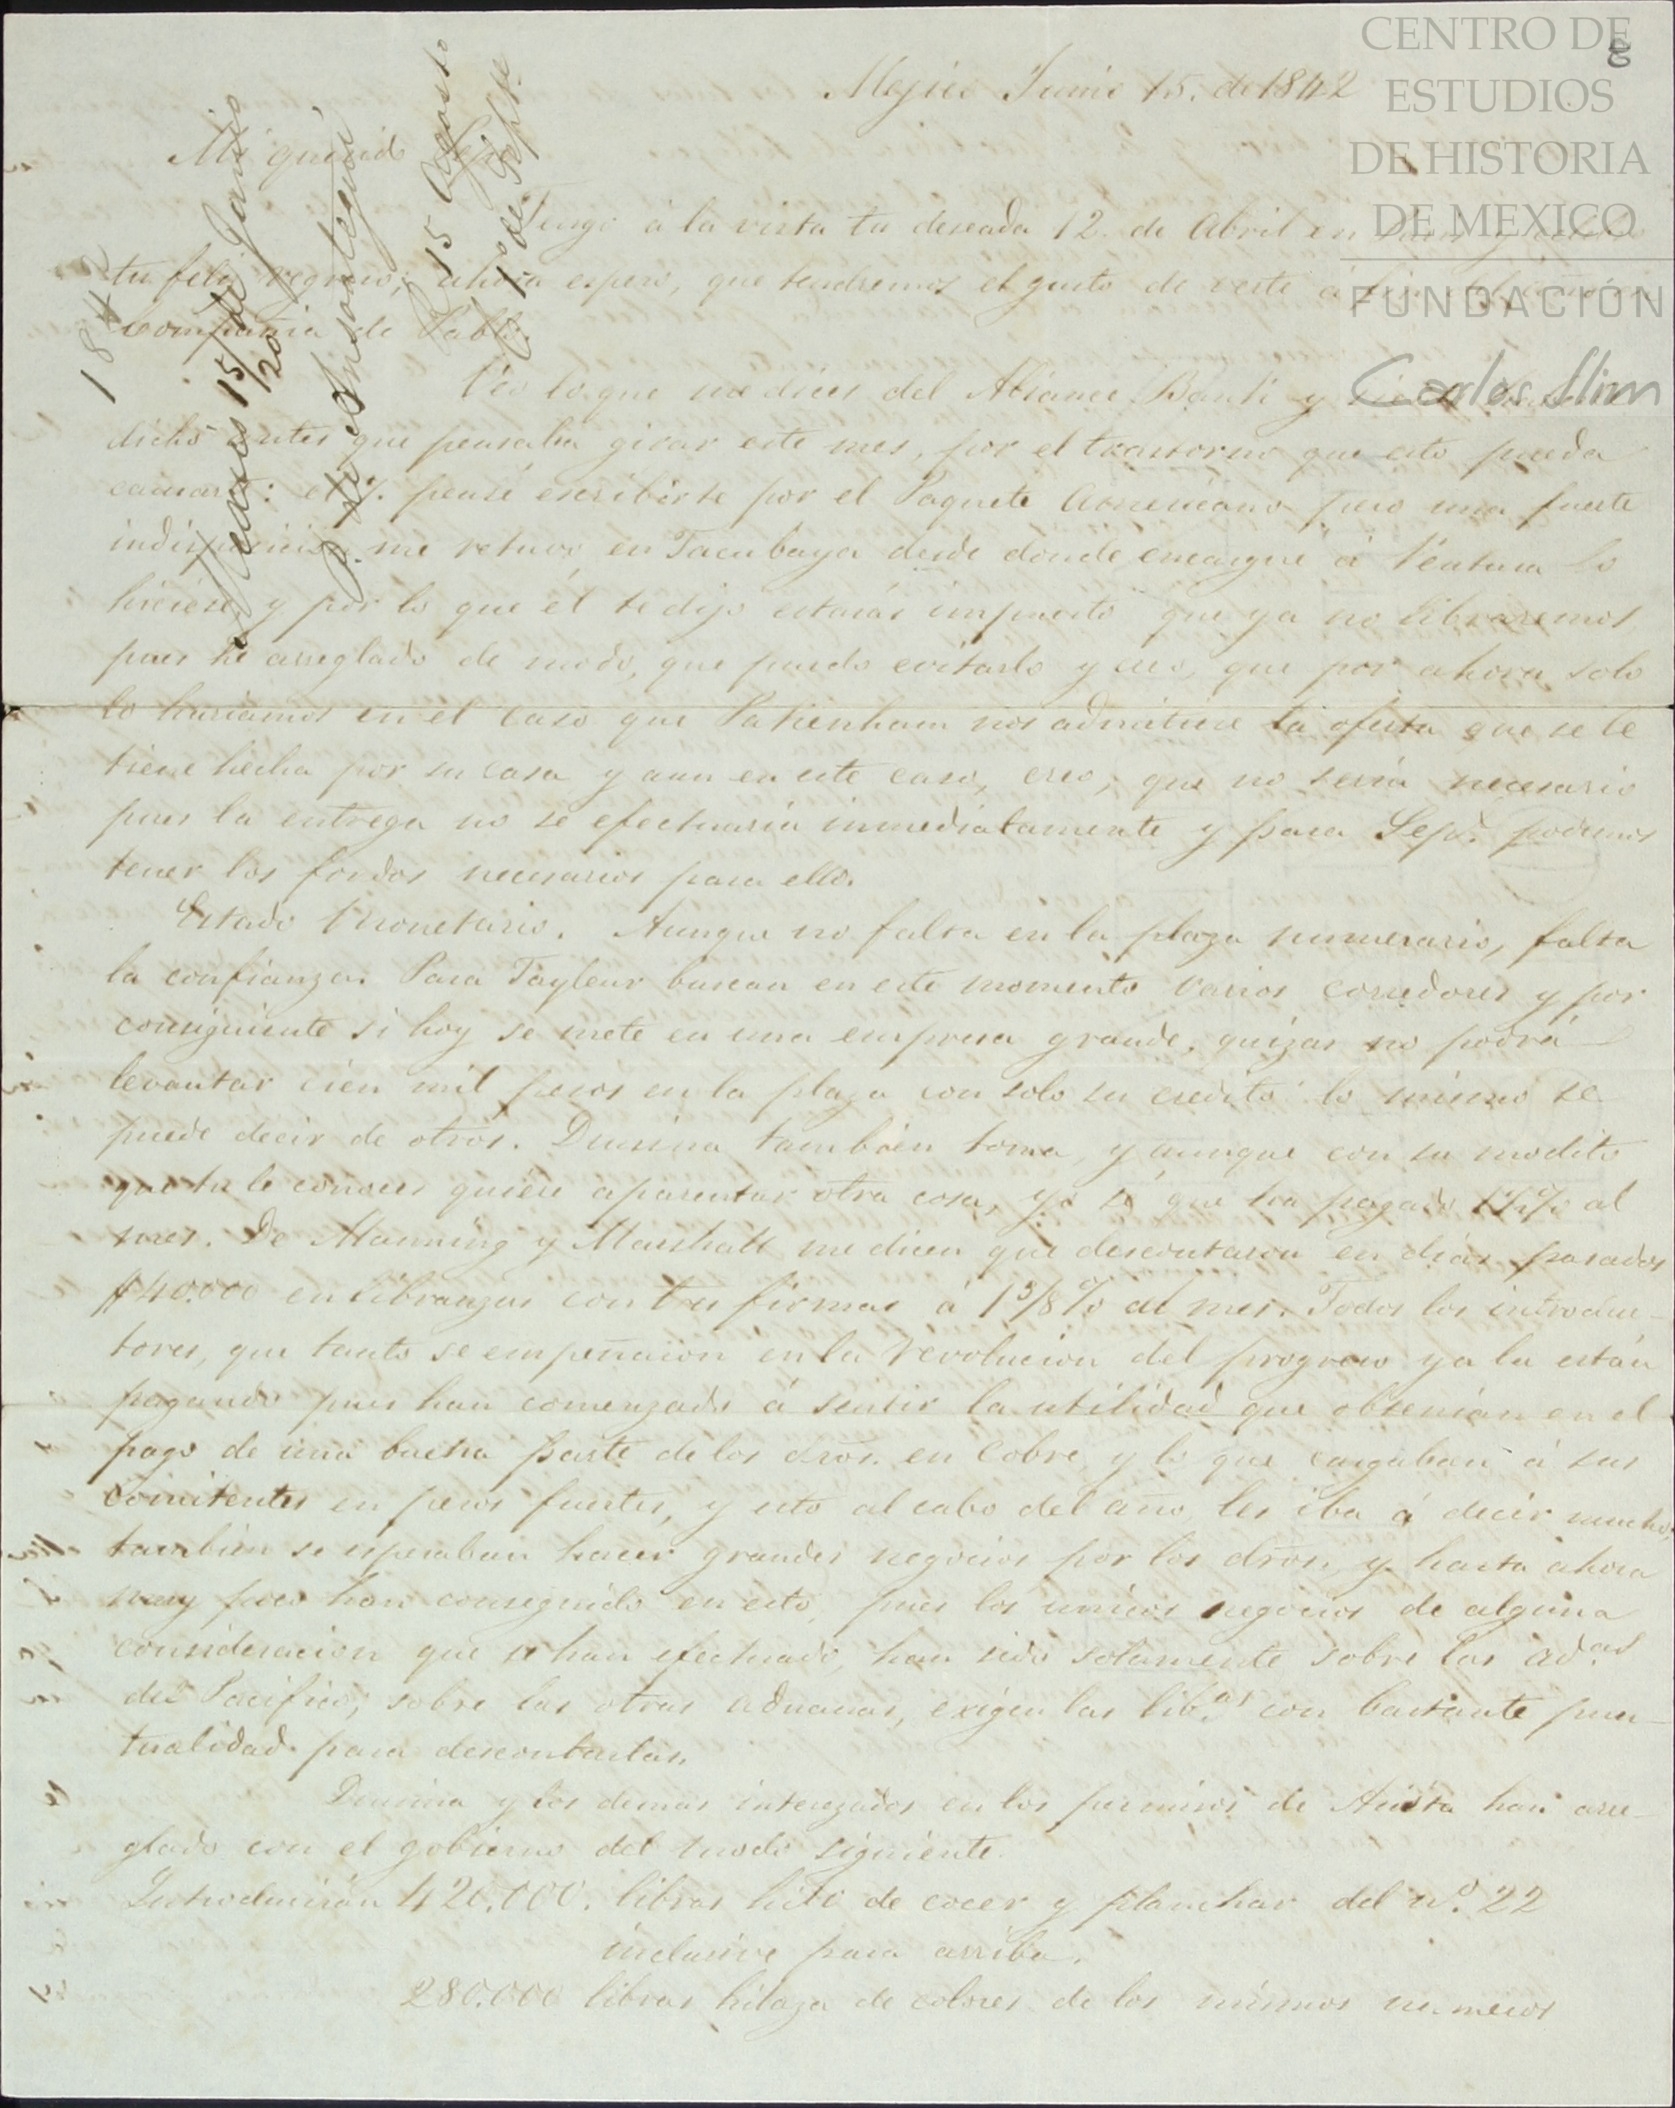 CENTRO DE
ESTUDIOS
DE HISTORIA
DE MEXICO
FUNDACIÓN
Carlos Slim
8
Mejico Junio 15. de 1842
Mi querido Pepe
Tengo á la vista tu deseada 12. de Abril en
tu feliz regreso; ahora espero, que tendremos el gusto de verte
compañia de Pablo.
Veo lo que me dices del Bank y
dicho antes que pensaba girar este mes, por el trastorno que esto pueda
causar: el pensé escribirte por el Paquete Americano pero una fuerte
indisposicion me retuvo en Tacubaya desde donde encargué á Ventura lo
hiciese, y por lo que él te dijo estarás impuesto que ya no libraremos,
pues he arreglado de modo, que puedo evitarlo y creo, que por ahora solo
lo hariamos en el caso que Pakenham nos admitiese la oferta que se le
tiene hecha por su casa y aun en este caso, creo, que no seria necesario
pues la entrega no se efectuaria inmediatamente y para Sepe. podemos
tener los fondos necesarios para ello.
Estado Monetario. Aunque no falta en la plaza numerario, falta
la confianza. Para Tayleur buscan en este momento varios corredores y por
consiguiente si hoy se mete en una empresa grande, quizas no podrá
levantar cien mil pesos en la plaza con solo su credito lo mismo se
puede decir de otros. Drusina tambien toma, y aunque con su modito
que tu le conoces quiere aparentar otra cosa, yo sé que ha pagado al
mes. De Manning y Marshall me dicen que descontaron en dias pasados
$40.000 en libranzas con tres firmas á 1 5/8 % al mes. Todos los introduc-
tores, que tanto se empeñaron en la revolucion del progreso ya la están
pagando pues han comenzado á sentir la utilidad que obtenian en el
pago de una buena parte de los dros. en cobre y lo que cargaban á sus
comitentes en pesos fuertes, y esto al cabo del año, les iba á decir mucho,
tambien se esperaban hacer grandes negocios por los dros. y hasta ahora
muy poco han conseguido en esto, pues los unicos negocios de alguna
consideracion que se han efectuado, han sido solamente sobre las ad.as
del Pacifico; sobre las otras aduanas, exigen las lib.as con bastante pun-
tualidad para descontarlas.
Drusina y los demas interezados en los permisos de Arista han arre-
glado con el gobierno del modo siguiente.
Introducirán 420.000. libras hilo de cocer y planchar del no. 22
inclusive para arriba.
280.000 libras hilaza de colores de los mismos numeros
1842
Mexico 15/20 de Junio
P. de Ansoategui
R 15 Agosto
C 1o. de Sepe.